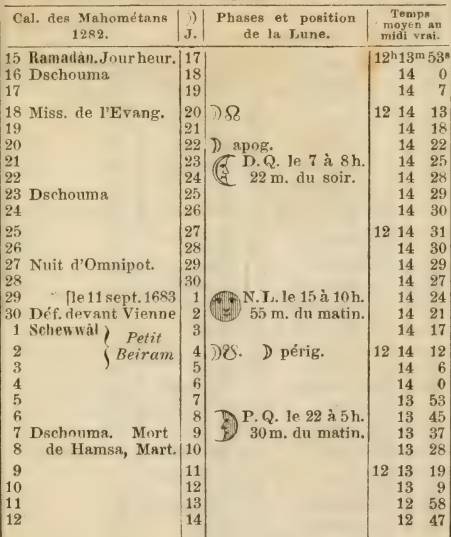 Cal. des Mahométans 1282. | ☽ J. | Phases et position de la Lune. | Temps moyen au midi vrai.
15 Ramadán. Jour heur. | 17 | | 12h 13m 53s
16 Dschouma | 18 | | 14 0
17 | 19 | | 14 7
18 Miss. de l'Evang. | 20 | ☽☊ | 12 14 13
19 | 21 | | 14 18
20 | 22 | ☽ apog. | 14 22
21 | 23 | D. Q. le 7 à 8h. | 14 25
22 | 24 | 22 m. du soir. | 14 28
23 Dschouma | 25 | | 14 29
24 | 26 | | 14 30
25 | 27 | | 12 14 31
26 | 28 | | 14 30
27 Nuit d'Omnipot. | 29 | | 14 29
28 | 30 | | 14 27
29 [le 11 sept. 1683 | 1 | N. L. le 15 à 10h. | 14 24
30 Déf. devant Vienne | 2 | 55 m. du matin. | 14 21
1 Schewwâl } Petit | 3 | | 14 17
2 Beiram | 4 | ☽☋. ☽ périg. | 12 14 12
3 | 5 | | 14 6
4 | 6 | | 14 0
5 | 7 | | 13 53
6 | 8 | P. Q. le 22 à 5h. | 13 45
7 Dschouma. Mort | 9 | 30 m. du matin. | 13 37
8 de Hamsa, Mart. | 10 | | 13 28
9 | 11 | | 12 13 19
10 | 12 | | 13 9
11 | 13 | | 12 58
12 | 14 | | 12 47